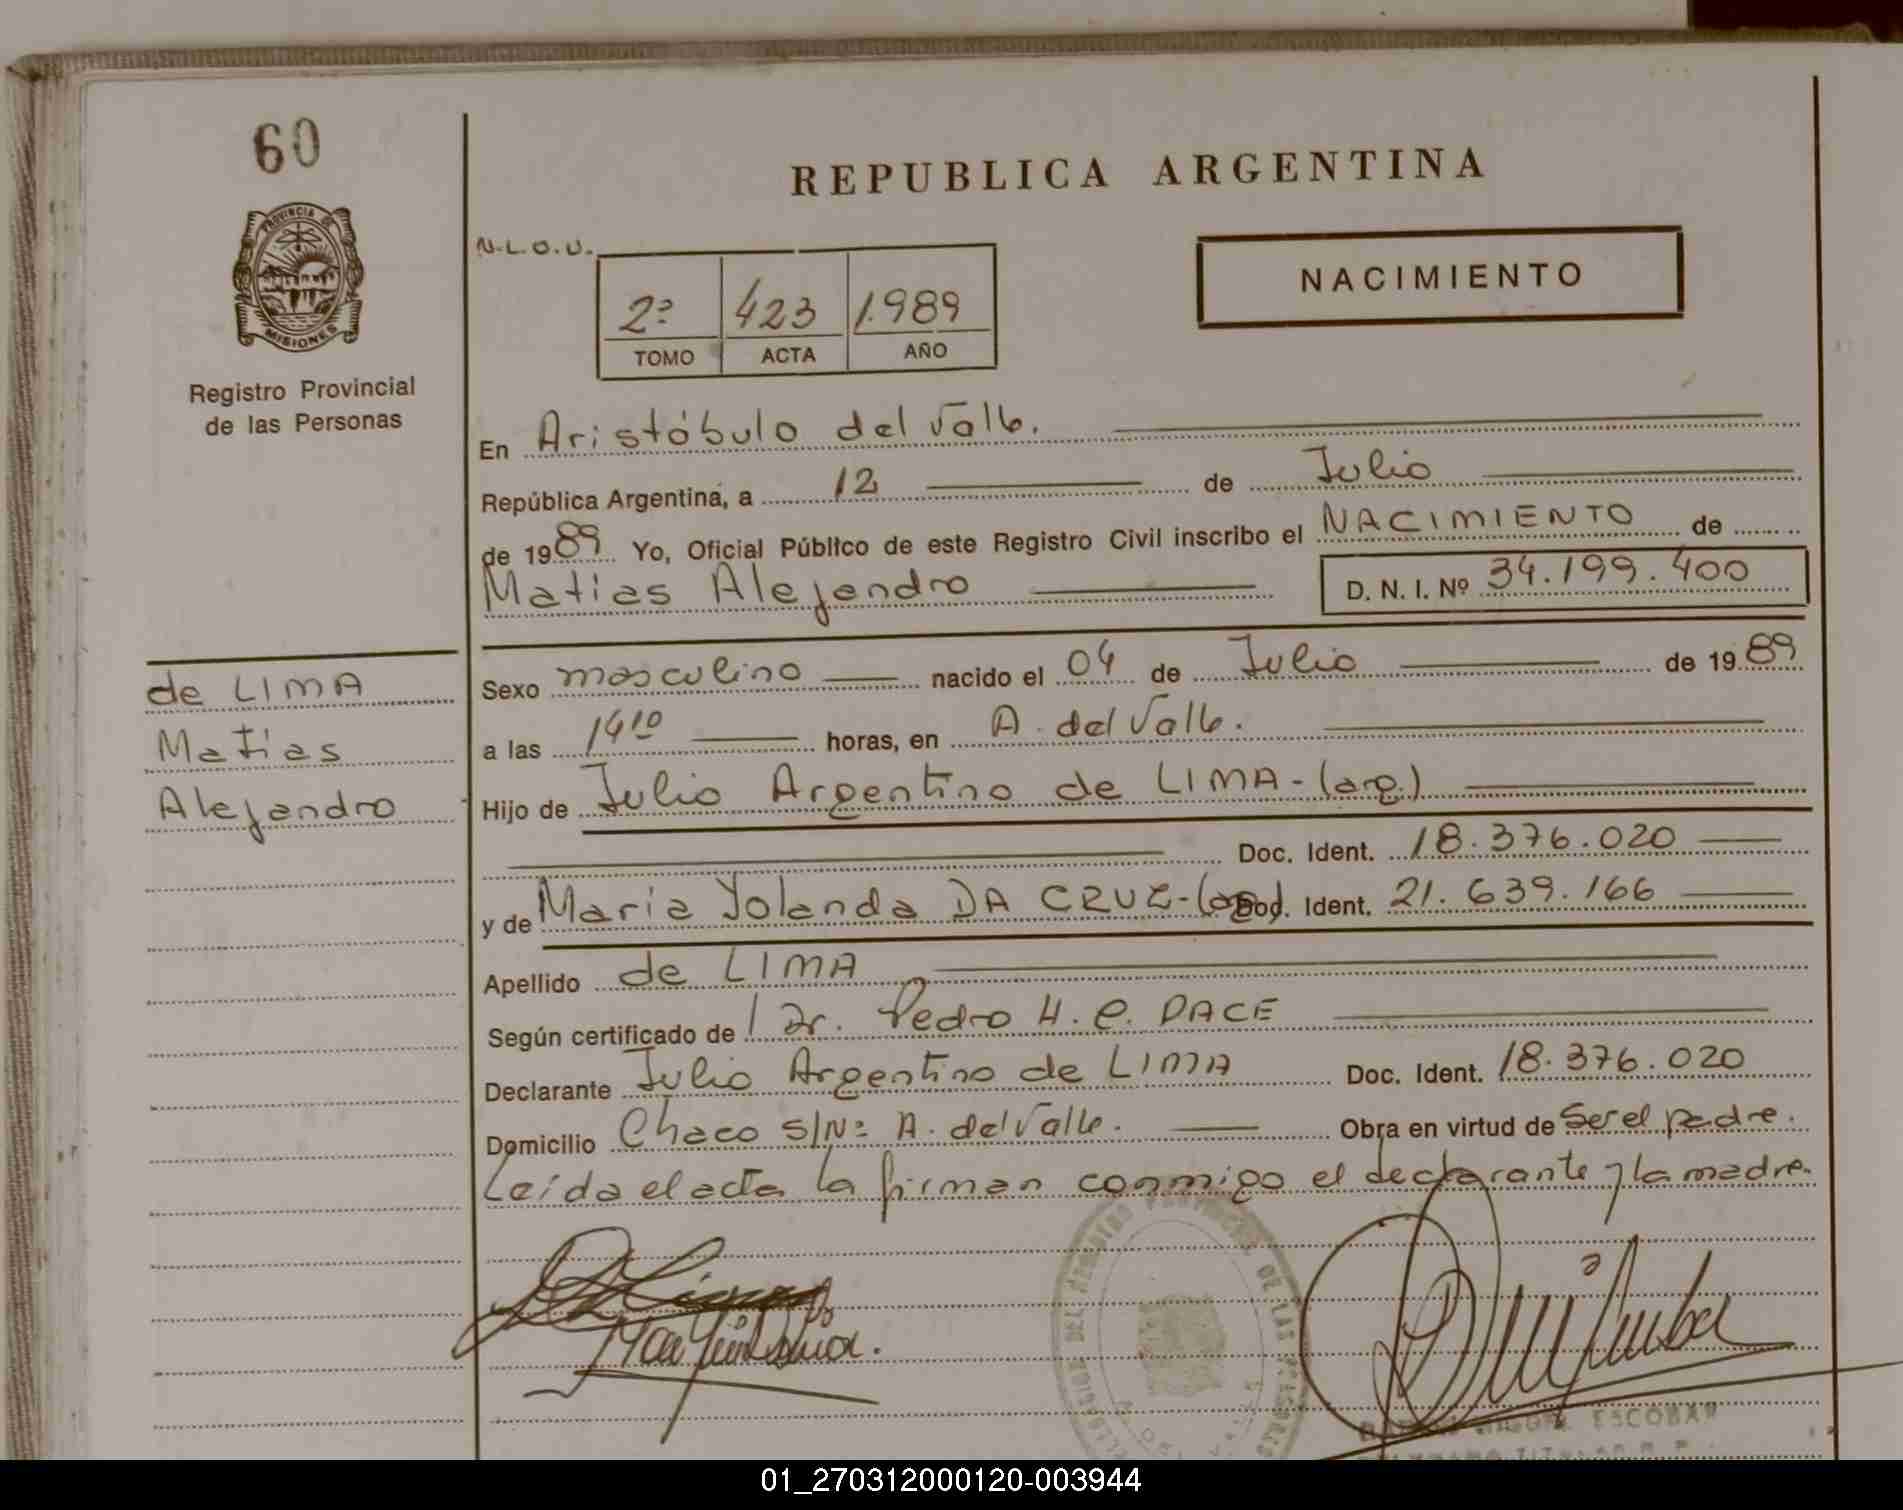 60
PROVINCIA DE
MISIONES
Registro Provincial
de las Personas
de LIMA
Matias
Alejandro
REPUBLICA ARGENTINA
N.L.O.U.
2º 423 1.989
TOMO ACTA AÑO
NACIMIENTO
En Aristóbulo del Valle.
República Argentina, a 12 de Julio
de 1989 Yo, Oficial Público de este Registro Civil inscribo el NACIMIENTO de
Matias Alejandro D. N. I. Nº 34.199.400
Sexo masculino nacido el 04 de Julio de 1989
a las 14 10 horas, en A. del Valle.
Hijo de Julio Argentino de LIMA-(arg.)
Doc. Ident. 18.376.020
y de Maria Yolanda DA CRUZ-(arg) Doc. Ident. 21.639.166
Apellido de LIMA
Según certificado de Dr. Pedro H. C. PACE
Declarante Julio Argentino de LIMA Doc. Ident. 18.376.020
Domicilio Chaco S/Nº A. del Valle. Obra en virtud de Ser el padre.
Leída el acta la firman conmigo el declarante y la madre.
PROVINCIAL DE LAS PERSONAS
ESCOBAR
01_270312000120-003944